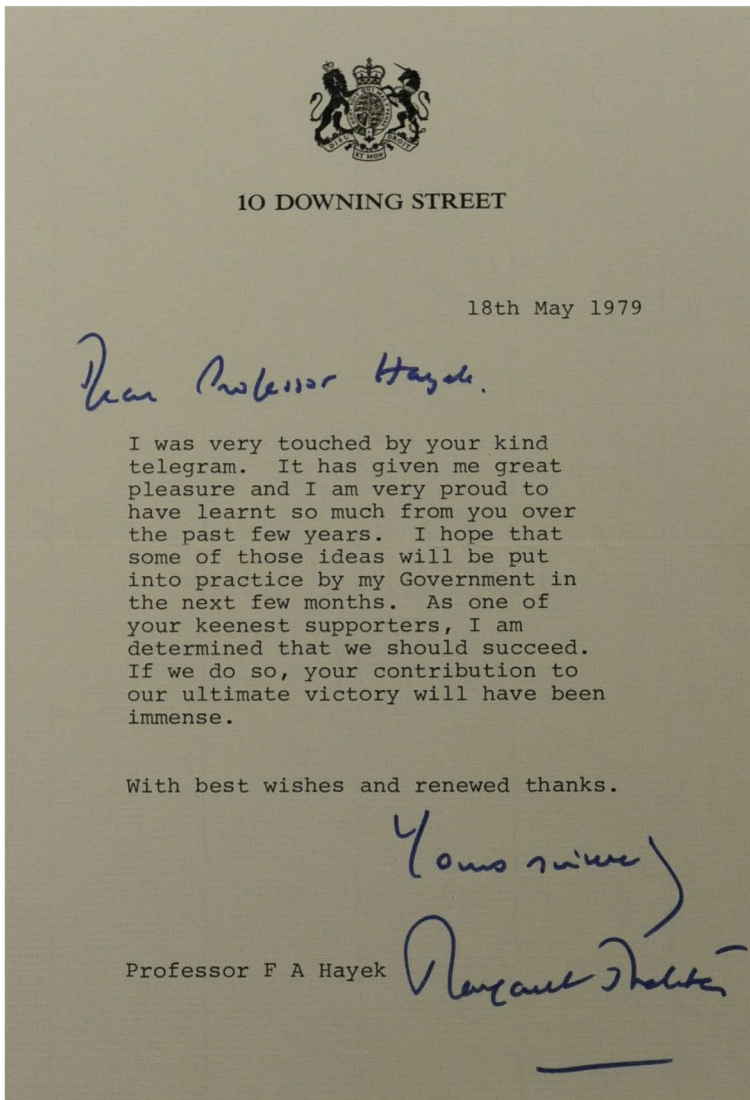 DIEU ET MON DROIT
10 DOWNING STREET
18th May 1979
Dear Professor Hayek.
I was very touched by your kind
telegram. It has given me great
pleasure and I am very proud to
have learnt so much from you over
the past few years. I hope that
some of those ideas will be put
into practice by my Government in
the next few months. As one of
your keenest supporters, I am
determined that we should succeed.
If we do so, your contribution to
our ultimate victory will have been
immense.
With best wishes and renewed thanks.
Yours sincerely
Margaret Thatcher
Professor F A Hayek